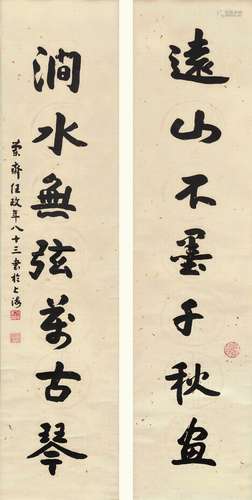 遠山不墨千秋画
澗水無弦萬古琴
蘭齋任政年八十三書於上海